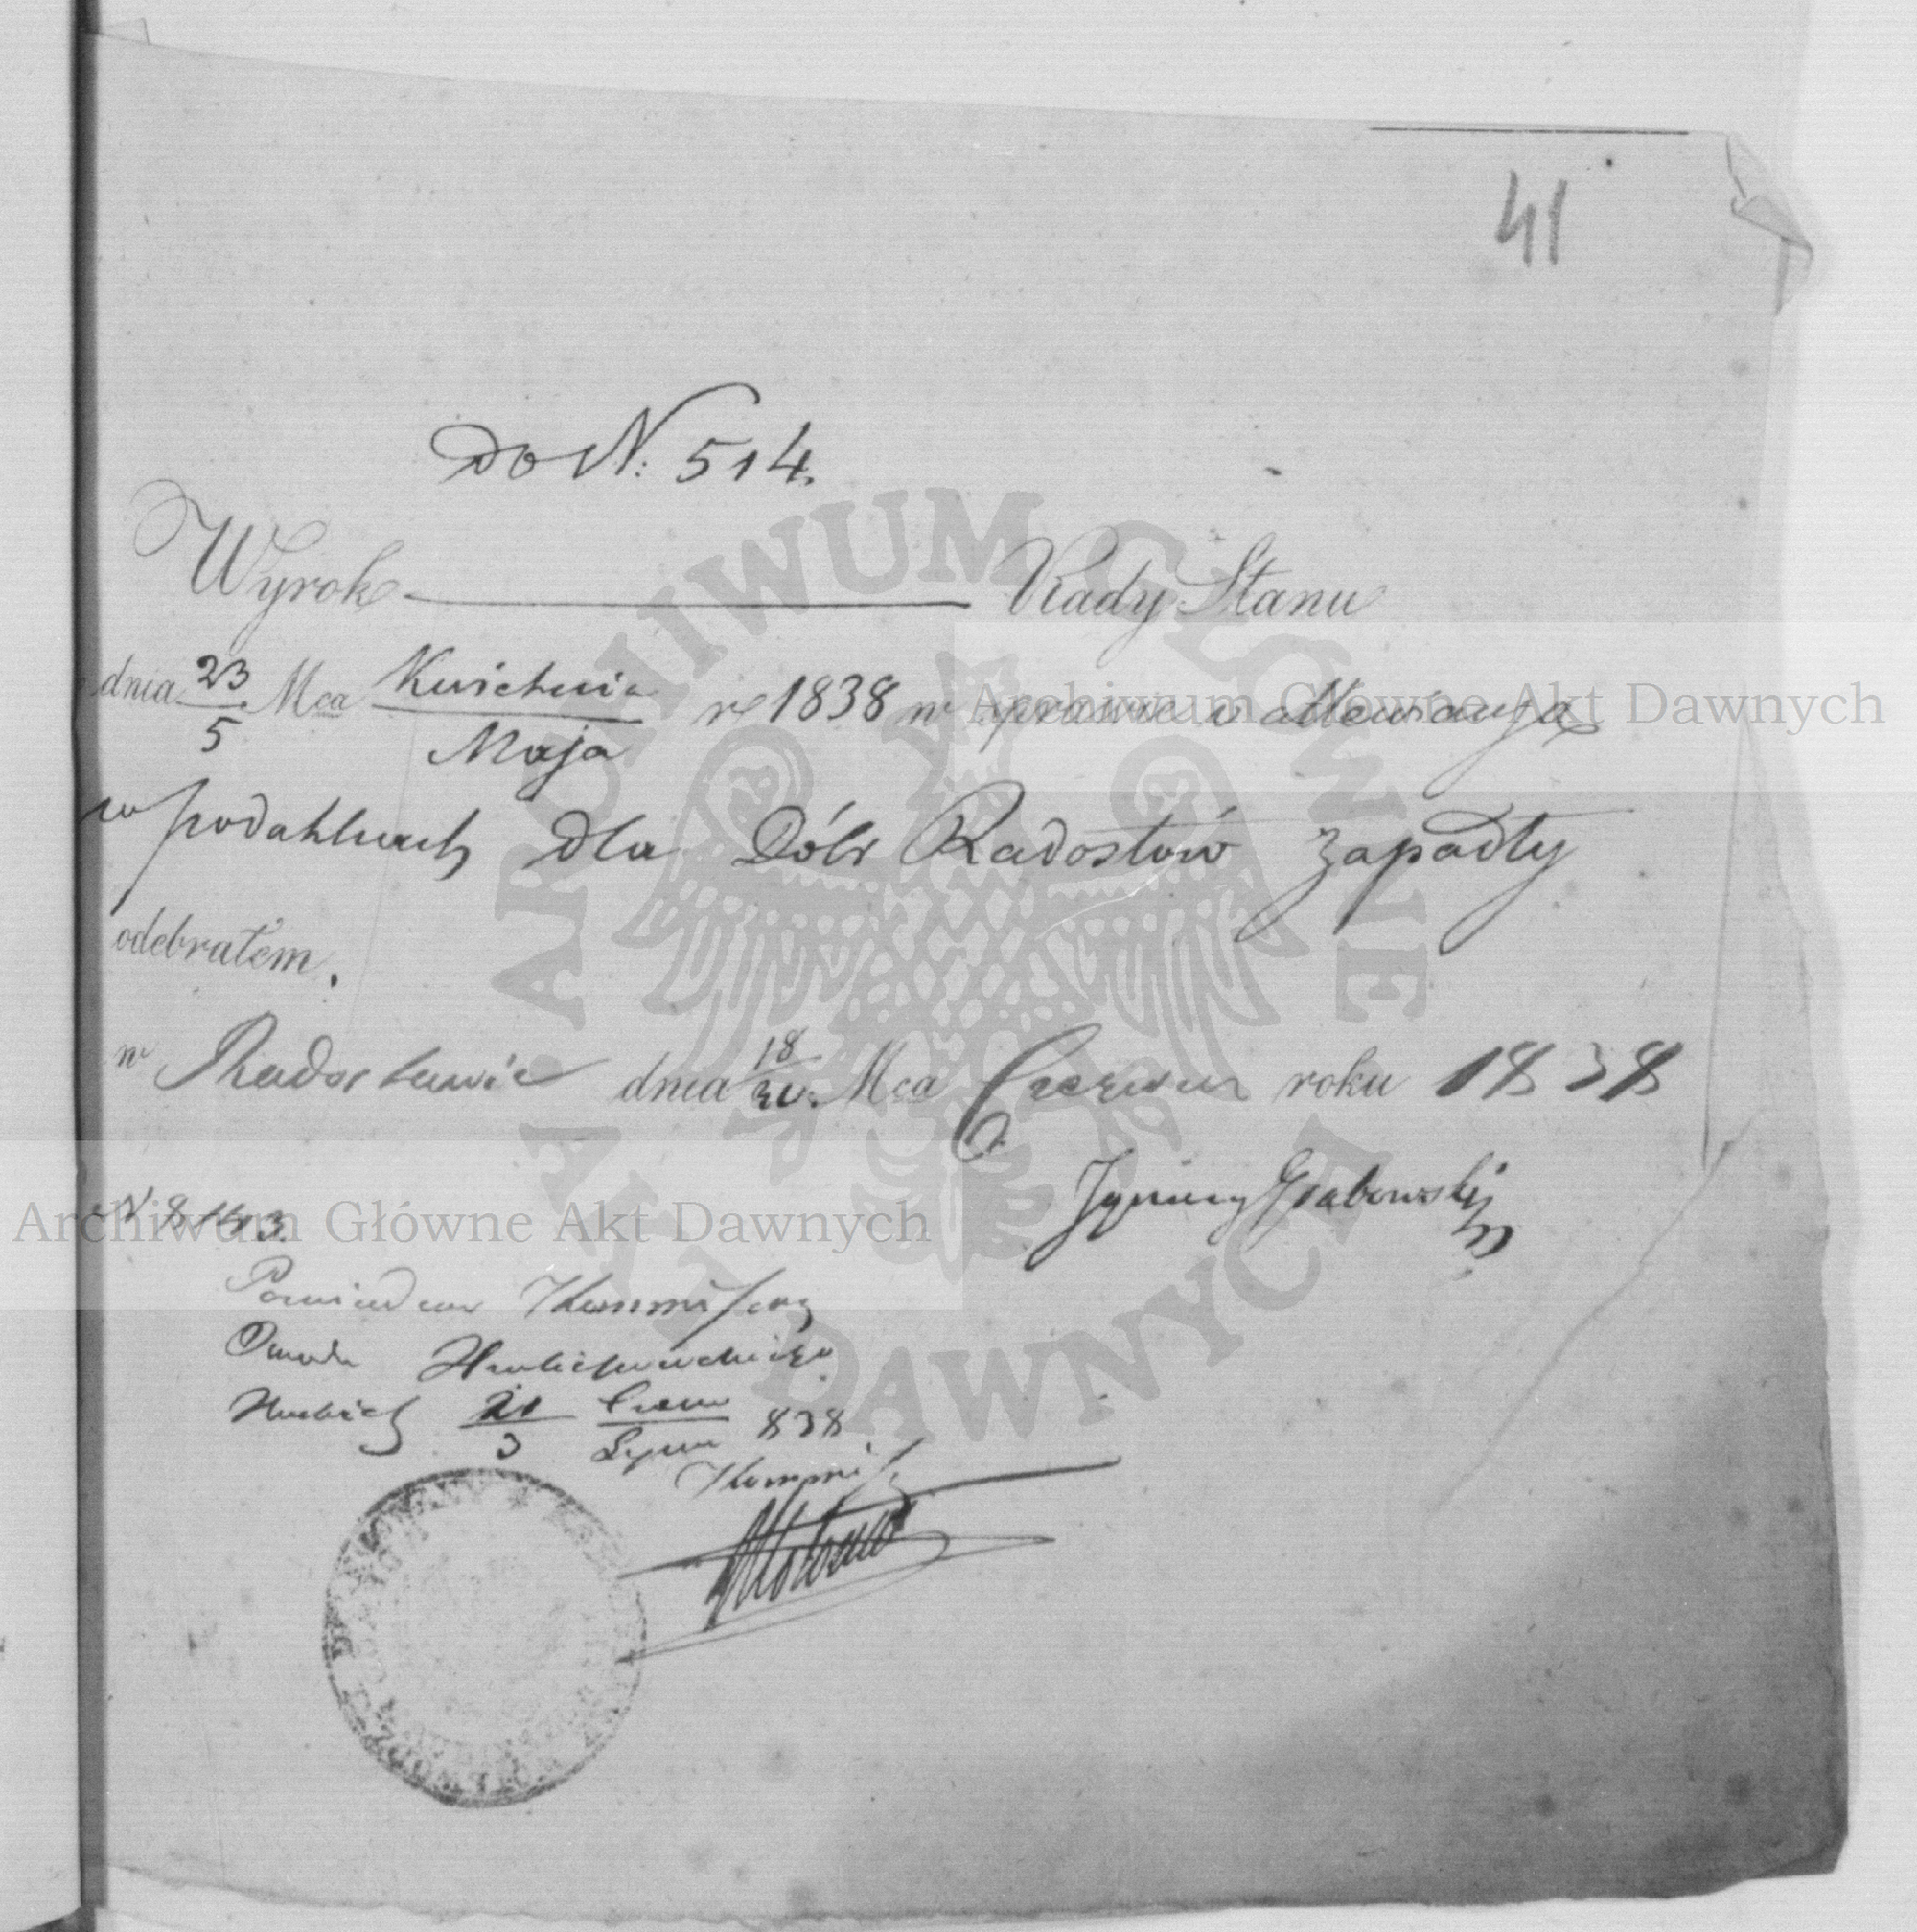 41
Do N: 514.
Wyrok Rady Stanu
dnia 23/5 Mca Kwietnia/Maja r 1838 w sprawie o allewiacyją
w podatkach dla Dóbr Radostów zapadły
odebrałem.
w Radostowie dnia 18/30. Mca Czerwca roku 1838
Ignacy Grabowski
N 8143.
Kommissarz
Obwodu Hrubieszowskiego
21/3 Czerw/Lipca 838
Kommiss
ARCHIWUM GŁÓWNE AKT DAWNYCH
Archiwum Główne Akt Dawnych
Archiwum Główne Akt Dawnych